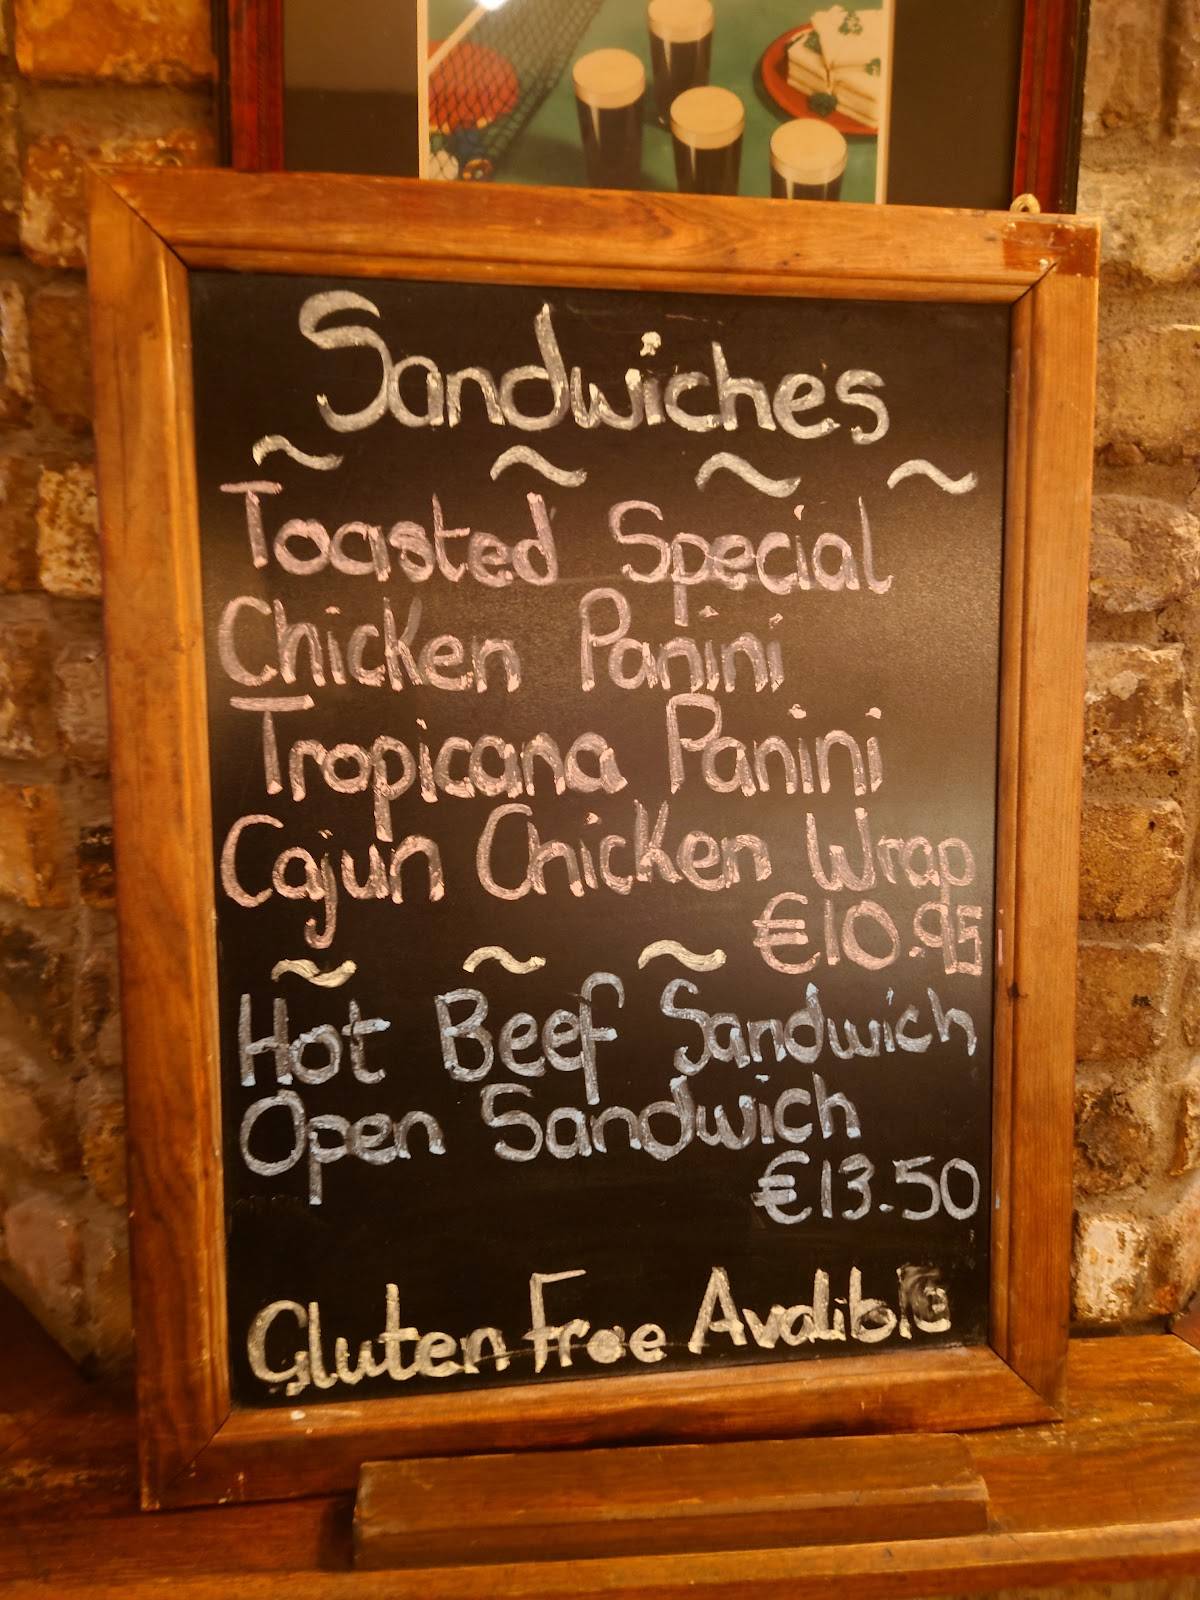 Sandwiches
~ ~ ~ ~
Toasted Special
Chicken Panini
Tropicana Panini
Cajun Chicken Wrap
€10.95
~ ~ ~
Hot Beef Sandwich
Open Sandwich
€13.50
Gluten Free Avalible